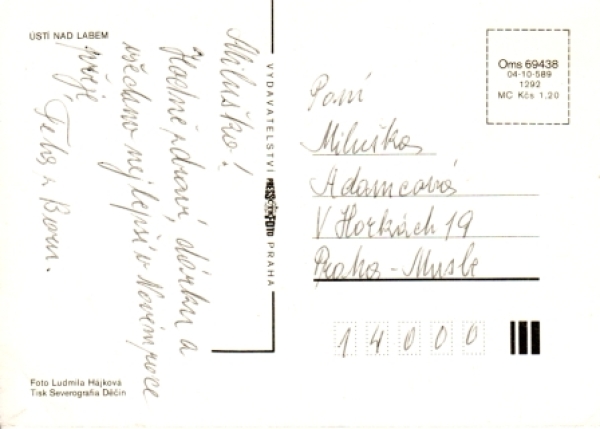 ÚSTÍ NAD LABEM
Miluško!
Hodně zdraví, dárků a
všechno nejlepší v Novém roce
přeje
VYDAVATELSTVÍ PRESSFOTO PRAHA
Oms 69438
04-10-589
1292
MC Kčs 1,20
Paní
Miluška
Adamcová
V Horkách 19
Praha - Nusle
14000
Foto Ludmila Hájková
Tisk Severografia Děčín